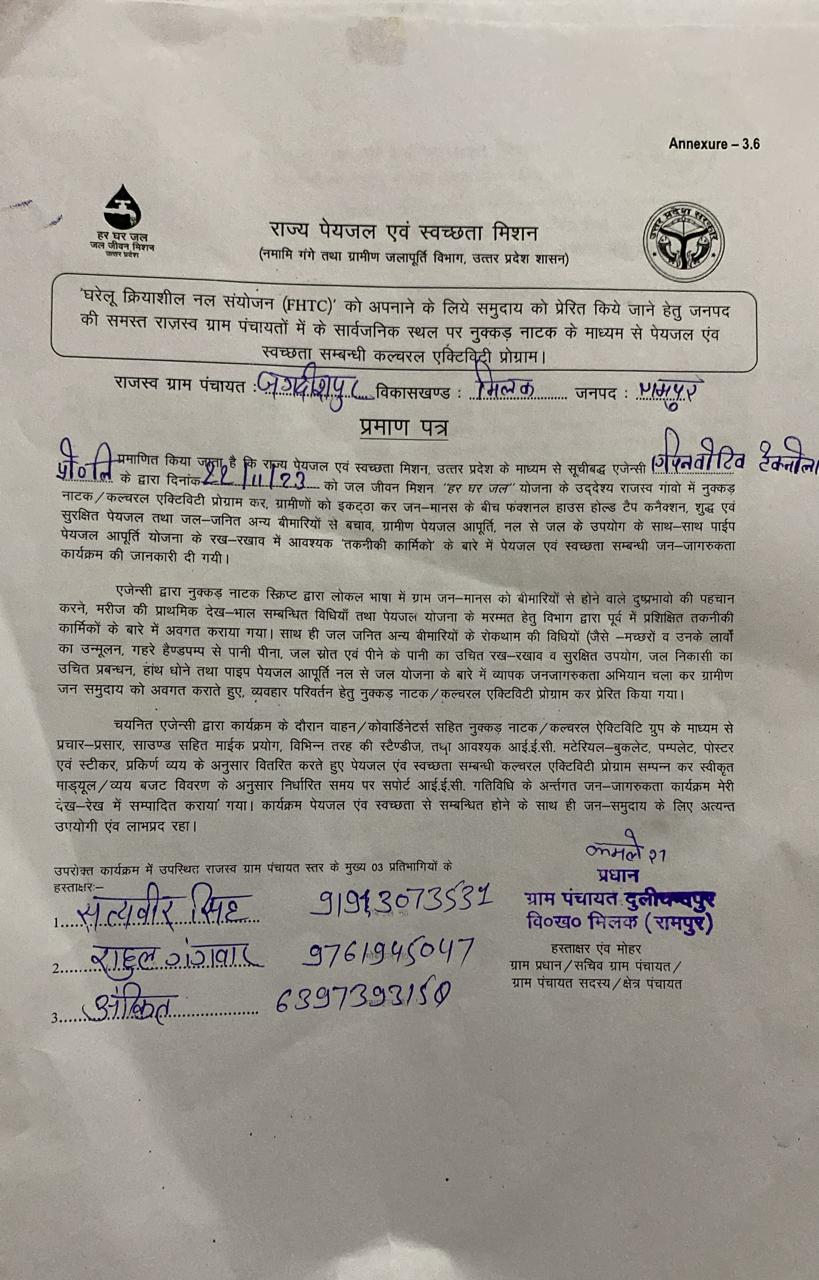 Annexure – 3.6
हर घर जल
जल जीवन मिशन
उत्तर प्रदेश
उत्तर प्रदेश सरकार
राज्य पेयजल एवं स्वच्छता मिशन
(नमामि गंगे तथा ग्रामीण जलापूर्ति विभाग, उत्तर प्रदेश शासन)
'घरेलू क्रियाशील नल संयोजन (FHTC)' को अपनाने के लिये समुदाय को प्रेरित किये जाने हेतु जनपद
की समस्त राजस्व ग्राम पंचायतों में के सार्वजनिक स्थल पर नुक्कड़ नाटक के माध्यम से पेयजल एंव
स्वच्छता सम्बन्धी कल्चरल एक्टिविटी प्रोग्राम।
राजस्व ग्राम पंचायत : जगदीशपुर विकासखण्ड : मिलक जनपद : रामपुर
प्रमाण पत्र
प्रमाणित किया जाता है कि राज्य पेयजल एवं स्वच्छता मिशन, उत्तर प्रदेश के माध्यम से सूचीबद्ध एजेन्सी
प्रो०लि के द्वारा दिनांक 22/11/23 को जल जीवन मिशन "हर घर जल" योजना के उद्देश्य राजस्व गांवो में नुक्कड़
नाटक/कल्चरल एक्टिविटी प्रोग्राम कर, ग्रामीणों को इकट्ठा कर जन–मानस के बीच फंक्शनल हाउस होल्ड टैप कनैक्शन, शुद्ध एवं
सुरक्षित पेयजल तथा जल–जनित अन्य बीमारियों से बचाव, ग्रामीण पेयजल आपूर्ति, नल से जल के उपयोग के साथ–साथ पाईप
पेयजल आपूर्ति योजना के रख–रखाव में आवश्यक 'तकनीकी कार्मिको' के बारे में पेयजल एवं स्वच्छता सम्बन्धी जन–जागरुकता
कार्यक्रम की जानकारी दी गयी।
एजेन्सी द्वारा नुक्कड़ नाटक स्क्रिप्ट द्वारा लोकल भाषा में ग्राम जन–मानस को बीमारियों से होने वाले दुष्प्रभावो की पहचान
करने, मरीज की प्राथमिक देख–भाल सम्बन्धित विधियाँ तथा पेयजल योजना के मरम्मत हेतु विभाग द्वारा पूर्व में प्रशिक्षित तकनीकी
कार्मिकों के बारे में अवगत कराया गया। साथ ही जल जनित अन्य बीमारियों के रोकथाम की विधियों (जैसे –मच्छरों व उनके लार्वो
का उन्मूलन, गहरे हैण्डपम्प से पानी पीना, जल स्रोत एवं पीने के पानी का उचित रख–रखाव व सुरक्षित उपयोग, जल निकासी का
उचित प्रबन्धन, हांथ धोने तथा पाइप पेयजल आपूर्ति नल से जल योजना के बारे में व्यापक जनजागरुकता अभियान चला कर ग्रामीण
जन समुदाय को अवगत कराते हुए, व्यवहार परिवर्तन हेतु नुक्कड़ नाटक/कल्चरल एक्टिविटी प्रोग्राम कर प्रेरित किया गया।
चयनित एजेन्सी द्वारा कार्यक्रम के दौरान वाहन/कोवार्डिनेटर्स सहित नुक्कड़ नाटक/कल्चरल ऐक्टिविटि ग्रुप के माध्यम से
प्रचार–प्रसार, साउण्ड सहित माईक प्रयोग, विभिन्न तरह की स्टैण्डीज, तथा आवश्यक आई.ई.सी. मटेरियल–बुकलेट, पम्पलेट, पोस्टर
एवं स्टीकर, प्रकिर्ण व्यय के अनुसार वितरित करते हुए पेयजल एंव स्वच्छता सम्बन्धी कल्चरल एक्टिविटी प्रोग्राम सम्पन्न कर स्वीकृत
माड्यूल/व्यय बजट विवरण के अनुसार निर्धारित समय पर सपोर्ट आई.ई.सी. गतिविधि के अर्न्तगत जन–जागरुकता कार्यक्रम मेरी
देख–रेख में सम्पादित कराया गया। कार्यक्रम पेयजल एंव स्वच्छता से सम्बन्धित होने के साथ ही जन–समुदाय के लिए अत्यन्त
उपयोगी एंव लाभप्रद रहा।
उपरोक्त कार्यक्रम में उपस्थित राजस्व ग्राम पंचायत स्तर के मुख्य 03 प्रतिभागियों के
हस्ताक्षरः–
1. सत्यवीर सिंह 9193073531
2. राहुल गंगवार 9761945047
3. अंकित 6397393150
प्रधान
ग्राम पंचायत
वि०ख० मिलक (रामपुर)
हस्ताक्षर एंव मोहर
ग्राम प्रधान/सचिव ग्राम पंचायत/
ग्राम पंचायत सदस्य/क्षेत्र पंचायत